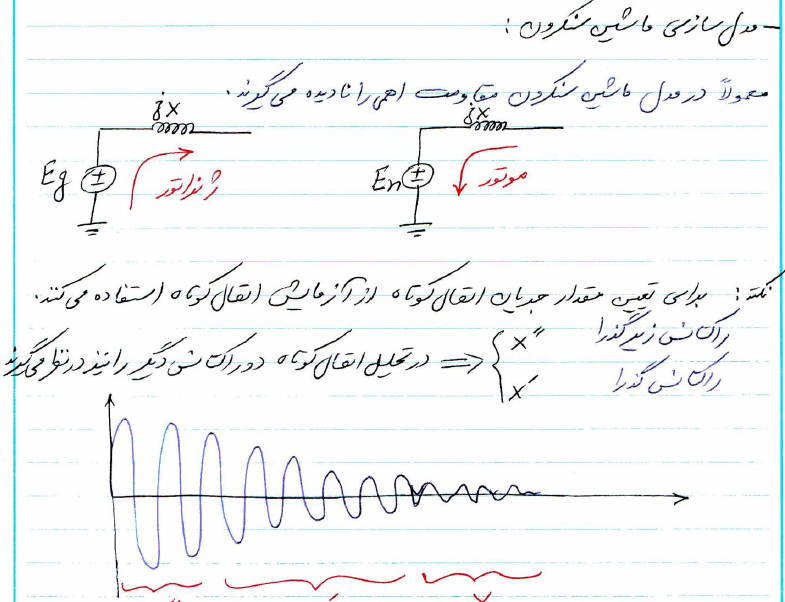 - مدل سازی ماشین سنکرون :
معمولاً در مدل ماشین سنکرون مقاومت اهمی را نادیده می گیرند.
jX jX
Eg ± ژنراتور Em ± موتور
نکته : برای تعیین مقدار جریان اتصال کوتاه از آزمایش اتصال کوتاه استفاده می کنند.
راکتانس زیرگذرا X″
راکتانس گذرا X′
⇐ در تحلیل اتصال کوتاه دو راکتانس دیگر را نیز در نظر می گیرند